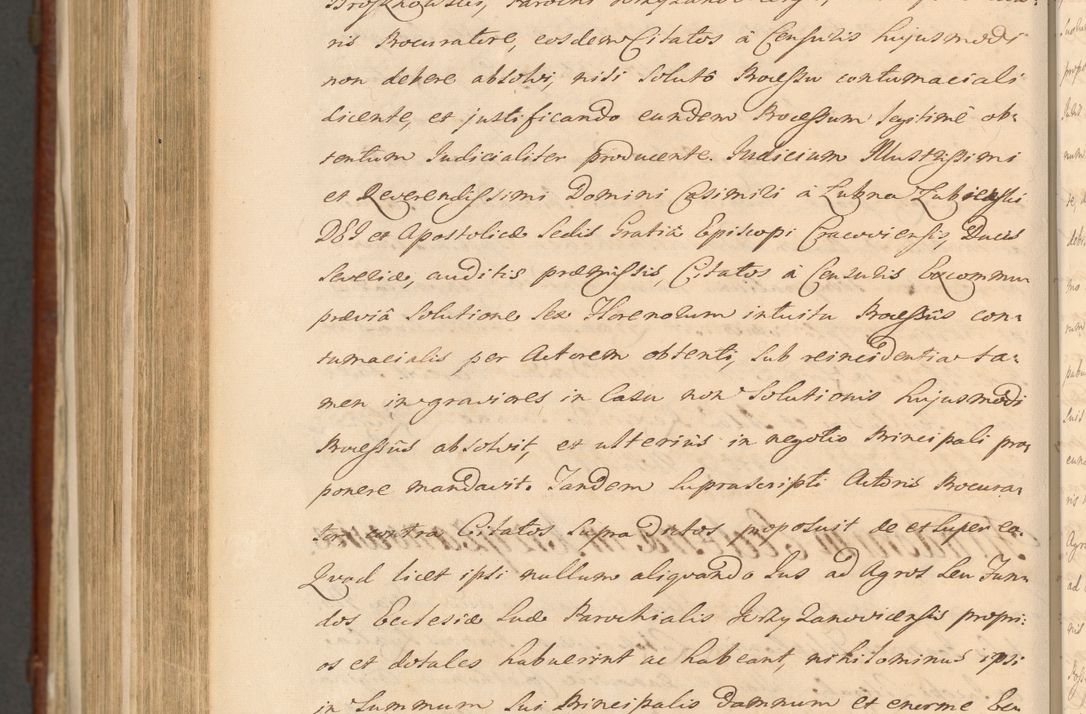 ris Procuratore, eosdem Citatos à Censuris hujusmodi
non debere absolvi, nisi solutô Processu contumaciali
dicente, et justificando eundem Processum legitimè ob-
tentum Judicialiter producente. Judicium Illustrissimi
et Reverendissimi Domini Casimiri à Łubna Łubieński
DEI et Apostolicæ Sedis Gratiâ Episcopi Cracoviensis, Ducis
Severiæ, auditis præmissis, Citatos à Censuris Excommu
præviâ Solutione Sex Florenorum intuitu Processûs con-
tumacialis per Actorem obtenti, sub reincidentia ta-
men in graviores in Casu non Solutionis hujusmodi
Processûs absolvit, et ulterius in negotio Principali pro-
ponere mandavit. Tandem suprascripti Actoris Procura-
tor contra Citatos supra Dictos proposuit de et super eo.
Quod licet ipsi nullum aliquando Jus ad Agros seu Fun-
dos Ecclesiæ suæ Parochialis Jerzyżanoviensis propri-
os et dotales habuerint ac habeant, nihilominus ipsi
in Summum sui Principalis Damnum et enorme